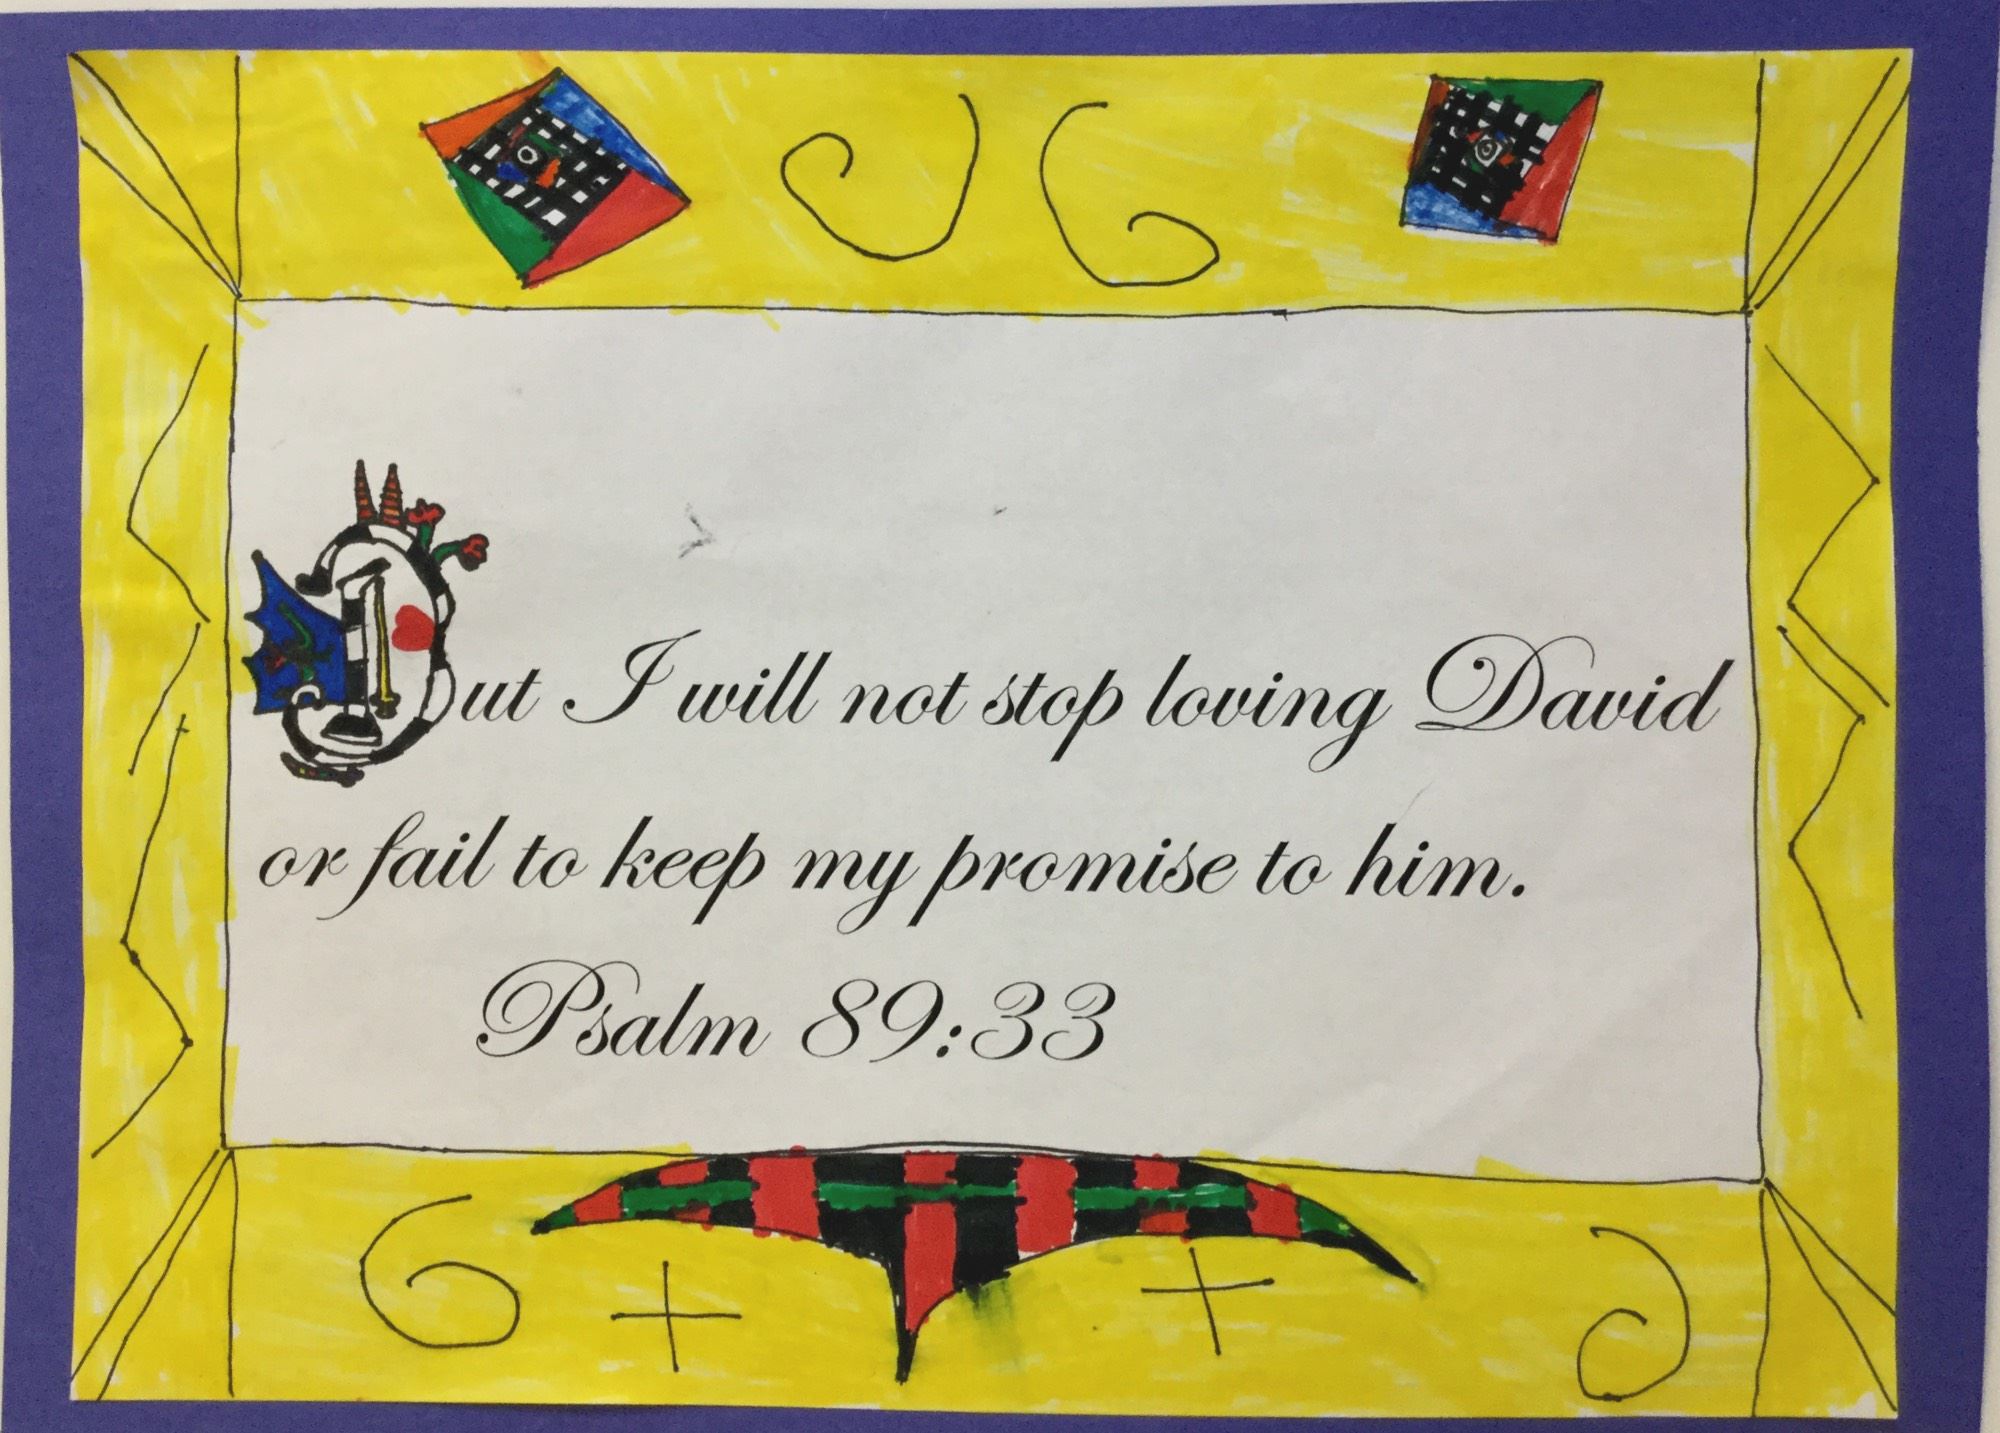 But I will not stop loving David
or fail to keep my promise to him.
Psalm 89:33